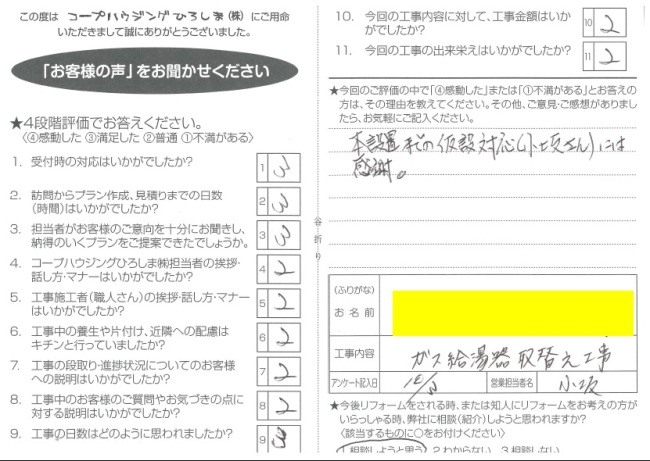 この度は コープハウジングひろしま(株) にご用命
いただきまして誠にありがとうございました。
「お客様の声」をお聞かせください
★4段階評価でお答えください。
〈④感動した ③満足した ②普通 ①不満がある〉
1. 受付時の対応はいかがでしたか?
1 3
2. 訪問からプラン作成、見積りまでの日数
(時間)はいかがでしたか?
2 3
3. 担当者がお客様のご意向を十分にお聞きし、
納得のいくプランをご提案できたでしょうか。
3 3
4. コープハウジングひろしま㈱担当者の挨拶・
話し方・マナーはいかがでしたか?
4 2
5. 工事施工者(職人さん)の挨拶・話し方・マナー
はいかがでしたか?
5 2
6. 工事中の養生や片付け、近隣への配慮は
キチンと行っていましたか?
6 2
7. 工事の段取り・進捗状況についてのお客様
への説明はいかがでしたか?
7 2
8. 工事中のお客様のご質問やお気づきの点に
対する説明はいかがでしたか?
8 2
9. 工事の日数はどのように思われましたか?
9 3
谷折り
10. 今回の工事内容に対して、工事金額はいか
がでしたか?
10 2
11. 今回の工事の出来栄えはいかがでしたか?
11 2
★今回のご評価の中で「④感動した」または「①不満がある」とお答えの
方は、その理由を教えてください。その他、ご意見・ご感想がありました
ら、お気軽にご記入ください。
本設置までの仮設対応(小坂さん)には
感謝。
(ふりがな)
お名前
工事内容 ガス給湯器取替え工事
アンケート記入日 12/3 営業担当者名 小坂
★今後リフォームをされる時、または知人にリフォームをお考えの方が
いらっしゃる時、弊社に相談(紹介)しようと思われますか?
〈該当するものに○をお付けください〉
1.相談しようと思う 2.わからない 3.相談しない